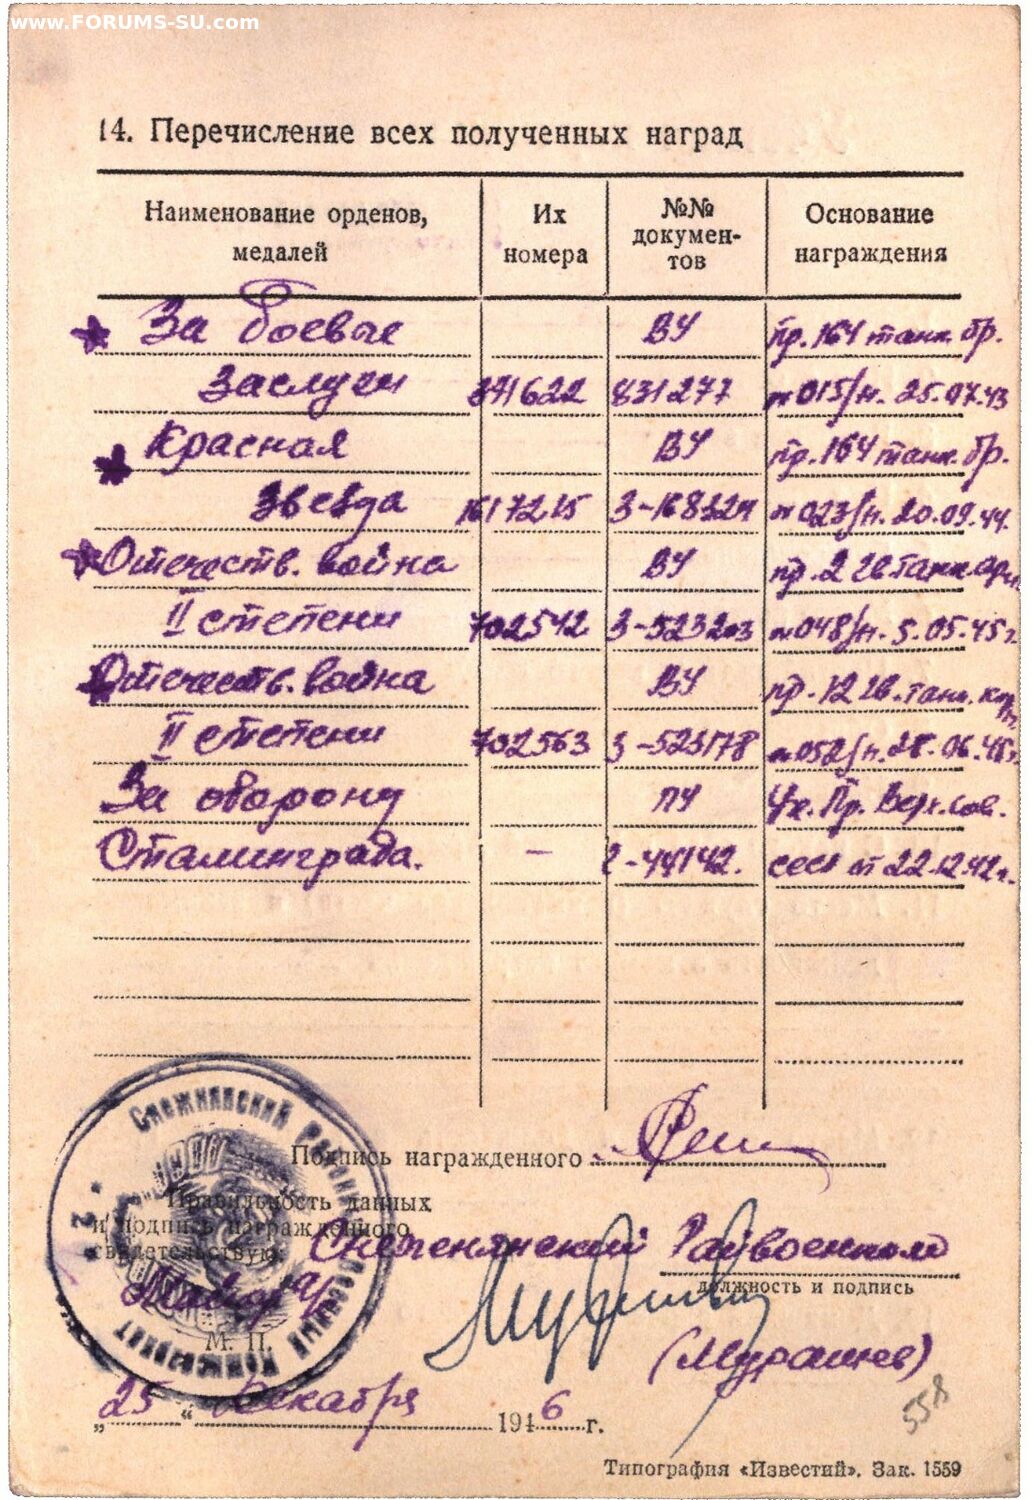 www.FORUMS-SU.com
14. Перечисление всех полученных наград
Наименование орденов, медалей
Их номера
№№ докумен-тов
Основание награждения
За боевые ВУ пр. 164 танк. бр.
Заслуги 831277 № 015/н. 25.07.43
Красная ВУ пр. 164 танк. бр.
Звезда № 023/н. 20.09.44.
Отечеств. война ВУ пр. 2 гв. танк. арм.
II степени 702542 № 048/н. 5.05.45г.
Отечеств. война ВУ пр. 12 гв. танк.
II степени 702563 З-523178 № 052/н. 28.06.45г.
За оборону ПУ Ук. Пр. Верх. Сов.
Сталинграда. — СССР от 22.12.42г.
Подпись награжденного
Правильность данных
и подпись награжденного
свидетельствую: Райвоенком
должность и подпись
Майор
М. П.
(Мурашев)
„25“ декабря 1946 г.
558
Типография «Известий». Зак. 1559